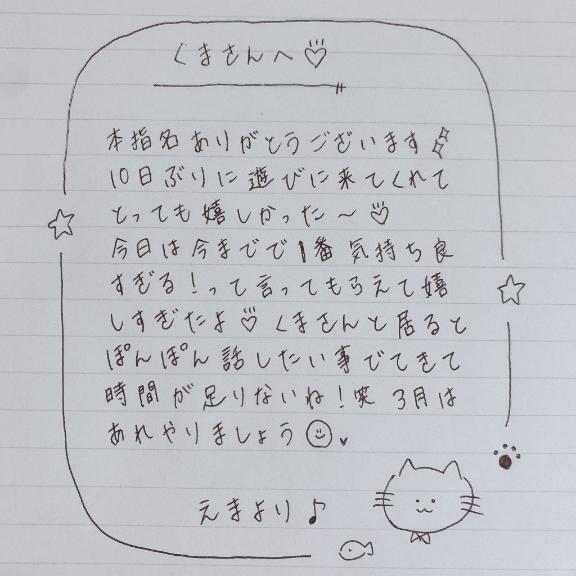 くまさんへ♡
本指名ありがとうございます
10日ぶりに遊びに来てくれて
とっても嬉しかった〜♡
今日は今までで1番気持ち良
すぎる!って言ってもらえて嬉
しすぎたよ♡くまさんと居ると
ぽんぽん話したい事でてきて
時間が足りないね!笑 3月は
あれやりましょう☺
えまより♪